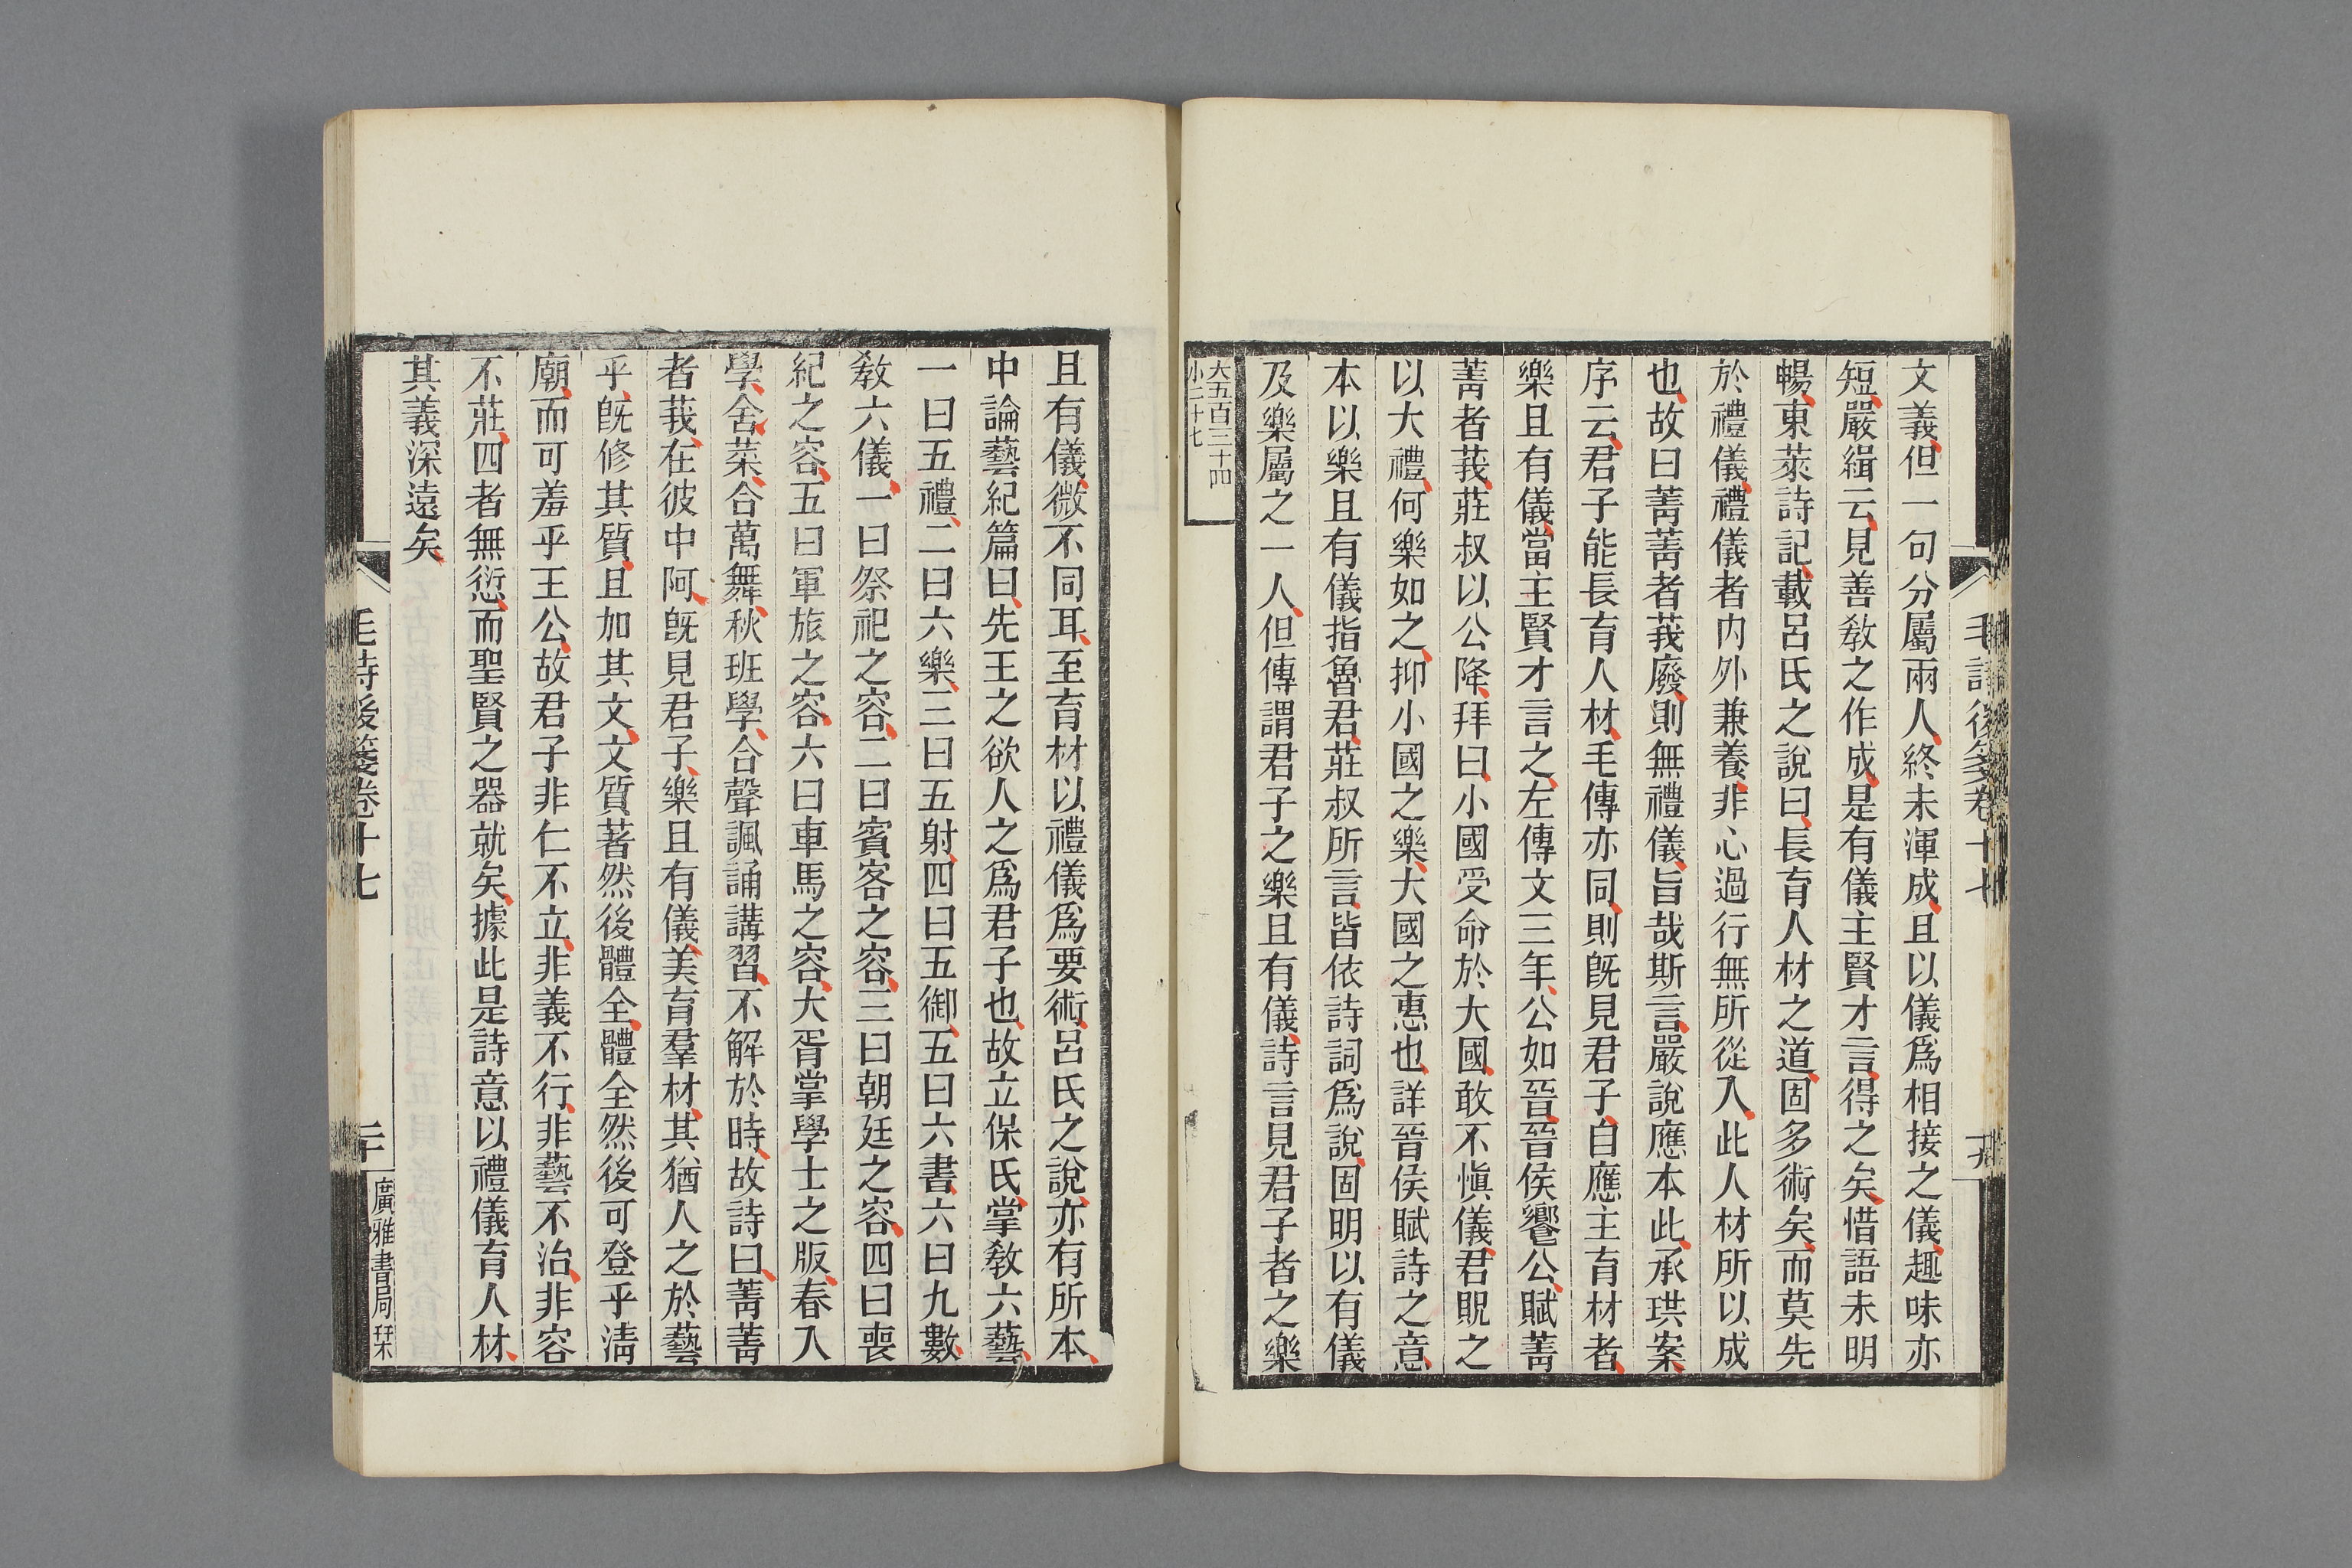 毛詩後箋卷十七
十九
文義但一句分屬兩人終未渾成且以儀爲相接之儀趣味亦
短嚴緝云見善敎之作成是有儀主賢才言得之矣惜語未明
暢東萊詩記載呂氏之說曰長育人材之道固多術矣而莫先
於禮儀禮儀者内外兼養非心過行無所從入此人材所以成
也故曰菁菁者莪廢則無禮儀旨哉斯言嚴說應本此承珙案
序云君子能長育人材毛傳亦同則旣見君子自應主育材者
樂且有儀當主賢才言之左傳文三年公如晉晉侯饗公賦菁
菁者莪莊叔以公降拜曰小國受命於大國敢不愼儀君貺之
以大禮何樂如之抑小國之樂大國之惠也詳晉侯賦詩之意
本以樂且有儀指魯君莊叔所言皆依詩詞爲說固明以有儀
及樂屬之一人但傳謂君子之樂且有儀詩言見君子者之樂
大五百三十四
小二十七
且有儀微不同耳至育材以禮儀爲要術呂氏之說亦有所本
中論藝紀篇曰先王之欲人之爲君子也故立保氏掌敎六藝
一曰五禮二曰六樂三曰五射四曰五御五曰六書六曰九數
敎六儀一曰祭祀之容二曰賓客之容三曰朝廷之容四曰喪
紀之容五曰軍旅之容六曰車馬之容大胥掌學士之版春入
學舍菜合萬舞秋班學合聲諷誦講習不解於時故詩曰菁菁
者莪在彼中阿旣見君子樂且有儀美育羣材其猶人之於藝
乎旣修其質且加其文文質著然後體全體全然後可登乎淸
廟而可羞乎王公故君子非仁不立非義不行非藝不治非容
不莊四者無愆而聖賢之器就矣據此是詩意以禮儀育人材
其義深遠矣
毛詩後箋卷十七
二十
廣雅書局栞